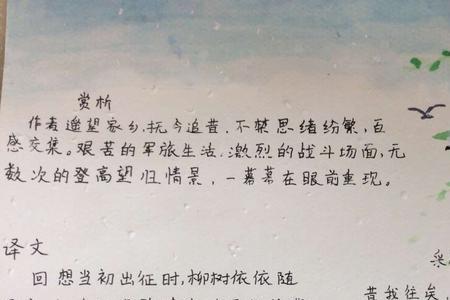 赏析
作者遥望家乡,抚今追昔,不禁思绪纷繁,百
感交集。艰苦的军旅生活,激烈的战斗场面,无
数次的登高望归情景,一幕幕在眼前重现。
译文
回想当初出征时,柳树依依随
采
昔我往矣